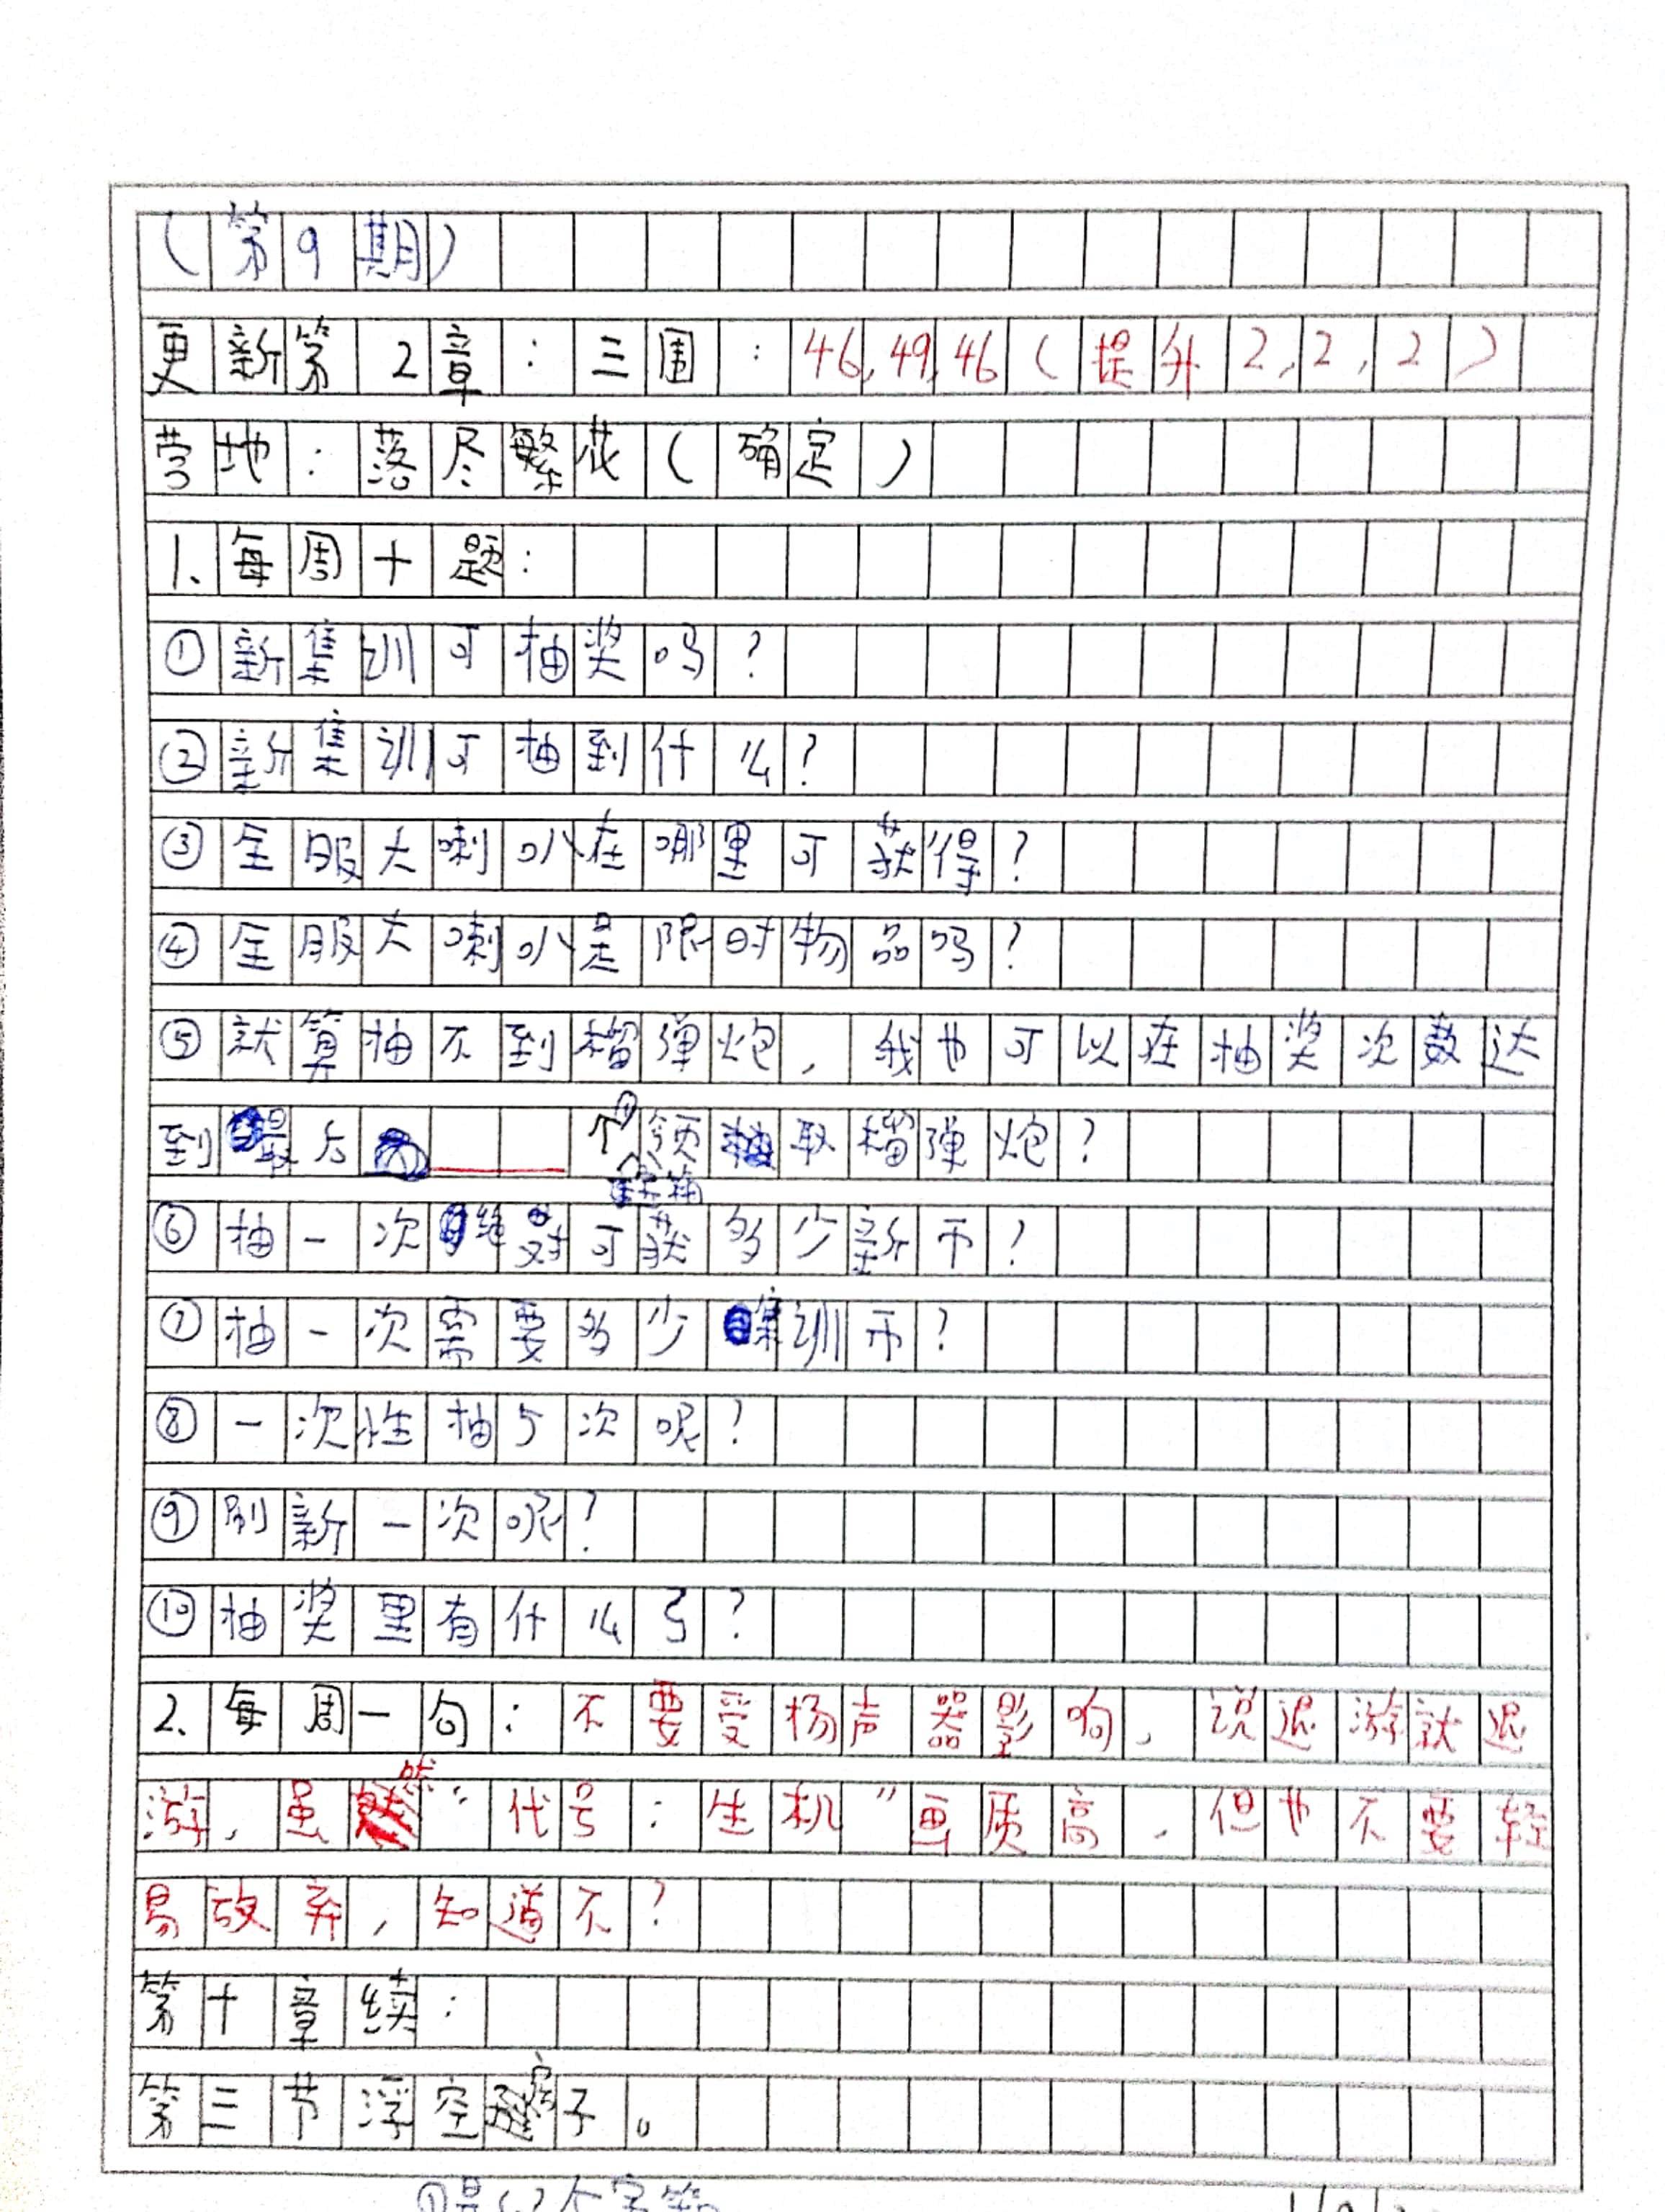 （第9期）
更新第2章：三围：46,49,46（提升2,2,2）
营地：落尽繁花（确定）
1、每周十题：
①新集训可抽奖吗？
②新集训可抽到什么？
③全服大喇叭在哪里可获得？
④全服大喇叭是限时物品吗？
⑤就算抽不到榴弹炮，我也可以在抽奖次数达
到最后____个①领取榴弹炮？
⑥抽一次绝对可获多少新币？
⑦抽一次需要多少集训币？
⑧一次性抽5次呢？
⑨刷新一次呢？
⑩抽奖里有什么了？
2、每周一句：不要受扬声器影响，说退游就退
游，虽然“代号：生机”画质高，但也不要轻
易放弃，知道不？
第十章续：
第三节浮空房子。